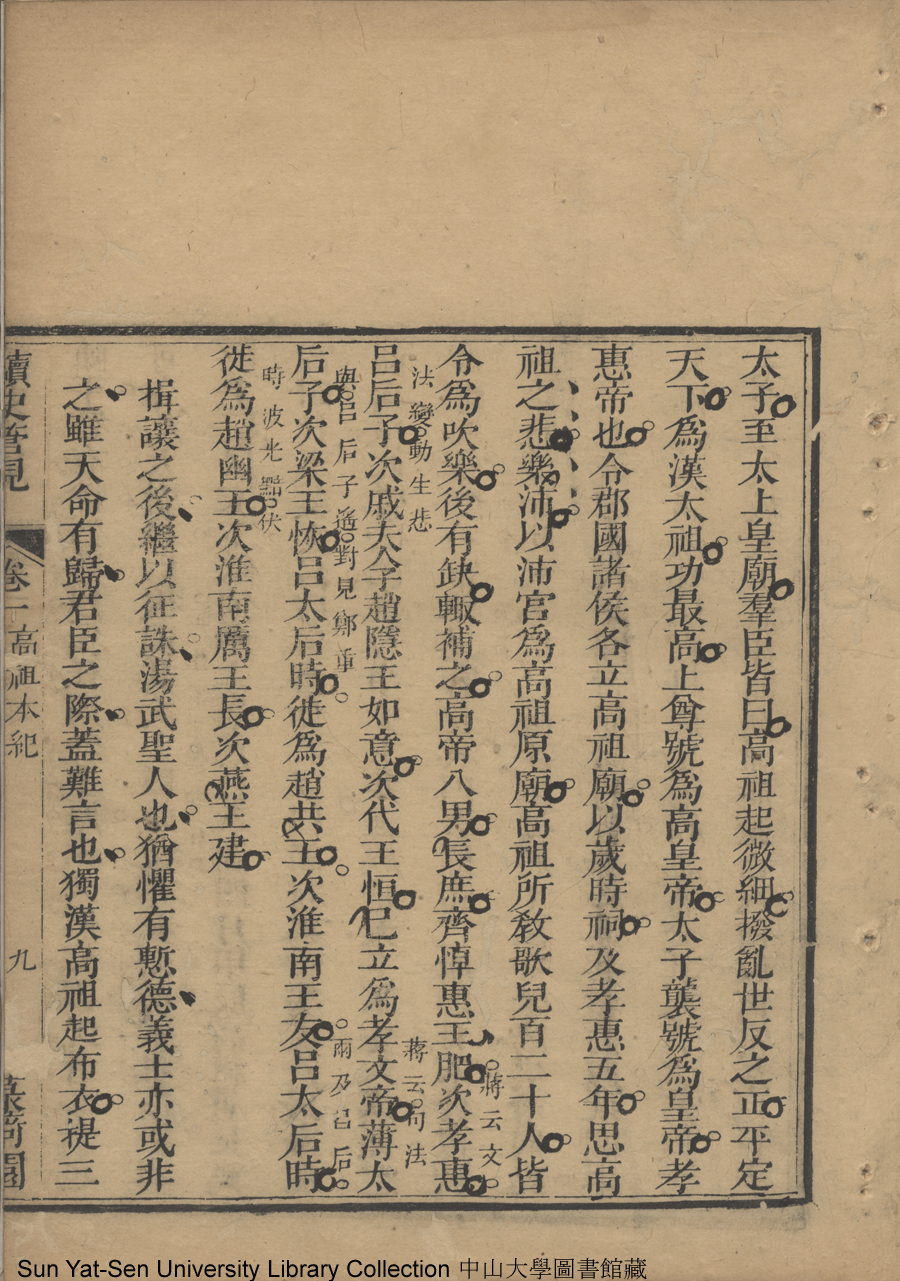 太子至太上皇廟羣臣皆曰高祖起微細撥亂世反之正平定
天下爲漢太祖功最高上尊號爲高皇帝太子襲號爲皇帝孝
惠帝也令郡國諸侯各立高祖廟以歲時祠及孝惠五年思高
祖之悲樂沛以沛宮爲高祖原廟高祖所敎歌兒百二十人皆
令爲吹樂後有缺輒補之高帝八男長庶齊悼惠王肥次孝惠
蔣云文
法變動生悲
呂后子次戚夫人子趙隱王如意次代王恒已立爲孝文帝薄太
蔣云句法
與呂后子遙對見鄭重
后子次梁王恢呂太后時徙爲趙共王次淮南王友呂太后時
兩乃呂后
時波光黯伏
徙爲趙幽王次淮南厲王長次燕王建
揖讓之後繼以征誅湯武聖人也猶懼有慙德義士亦或非
之雖天命有歸君臣之際蓋難言也獨漢高祖起布衣禔三
讀史管見
卷一高祖本紀
九
園
Sun Yat-Sen University Library Collection 中山大學圖書館藏